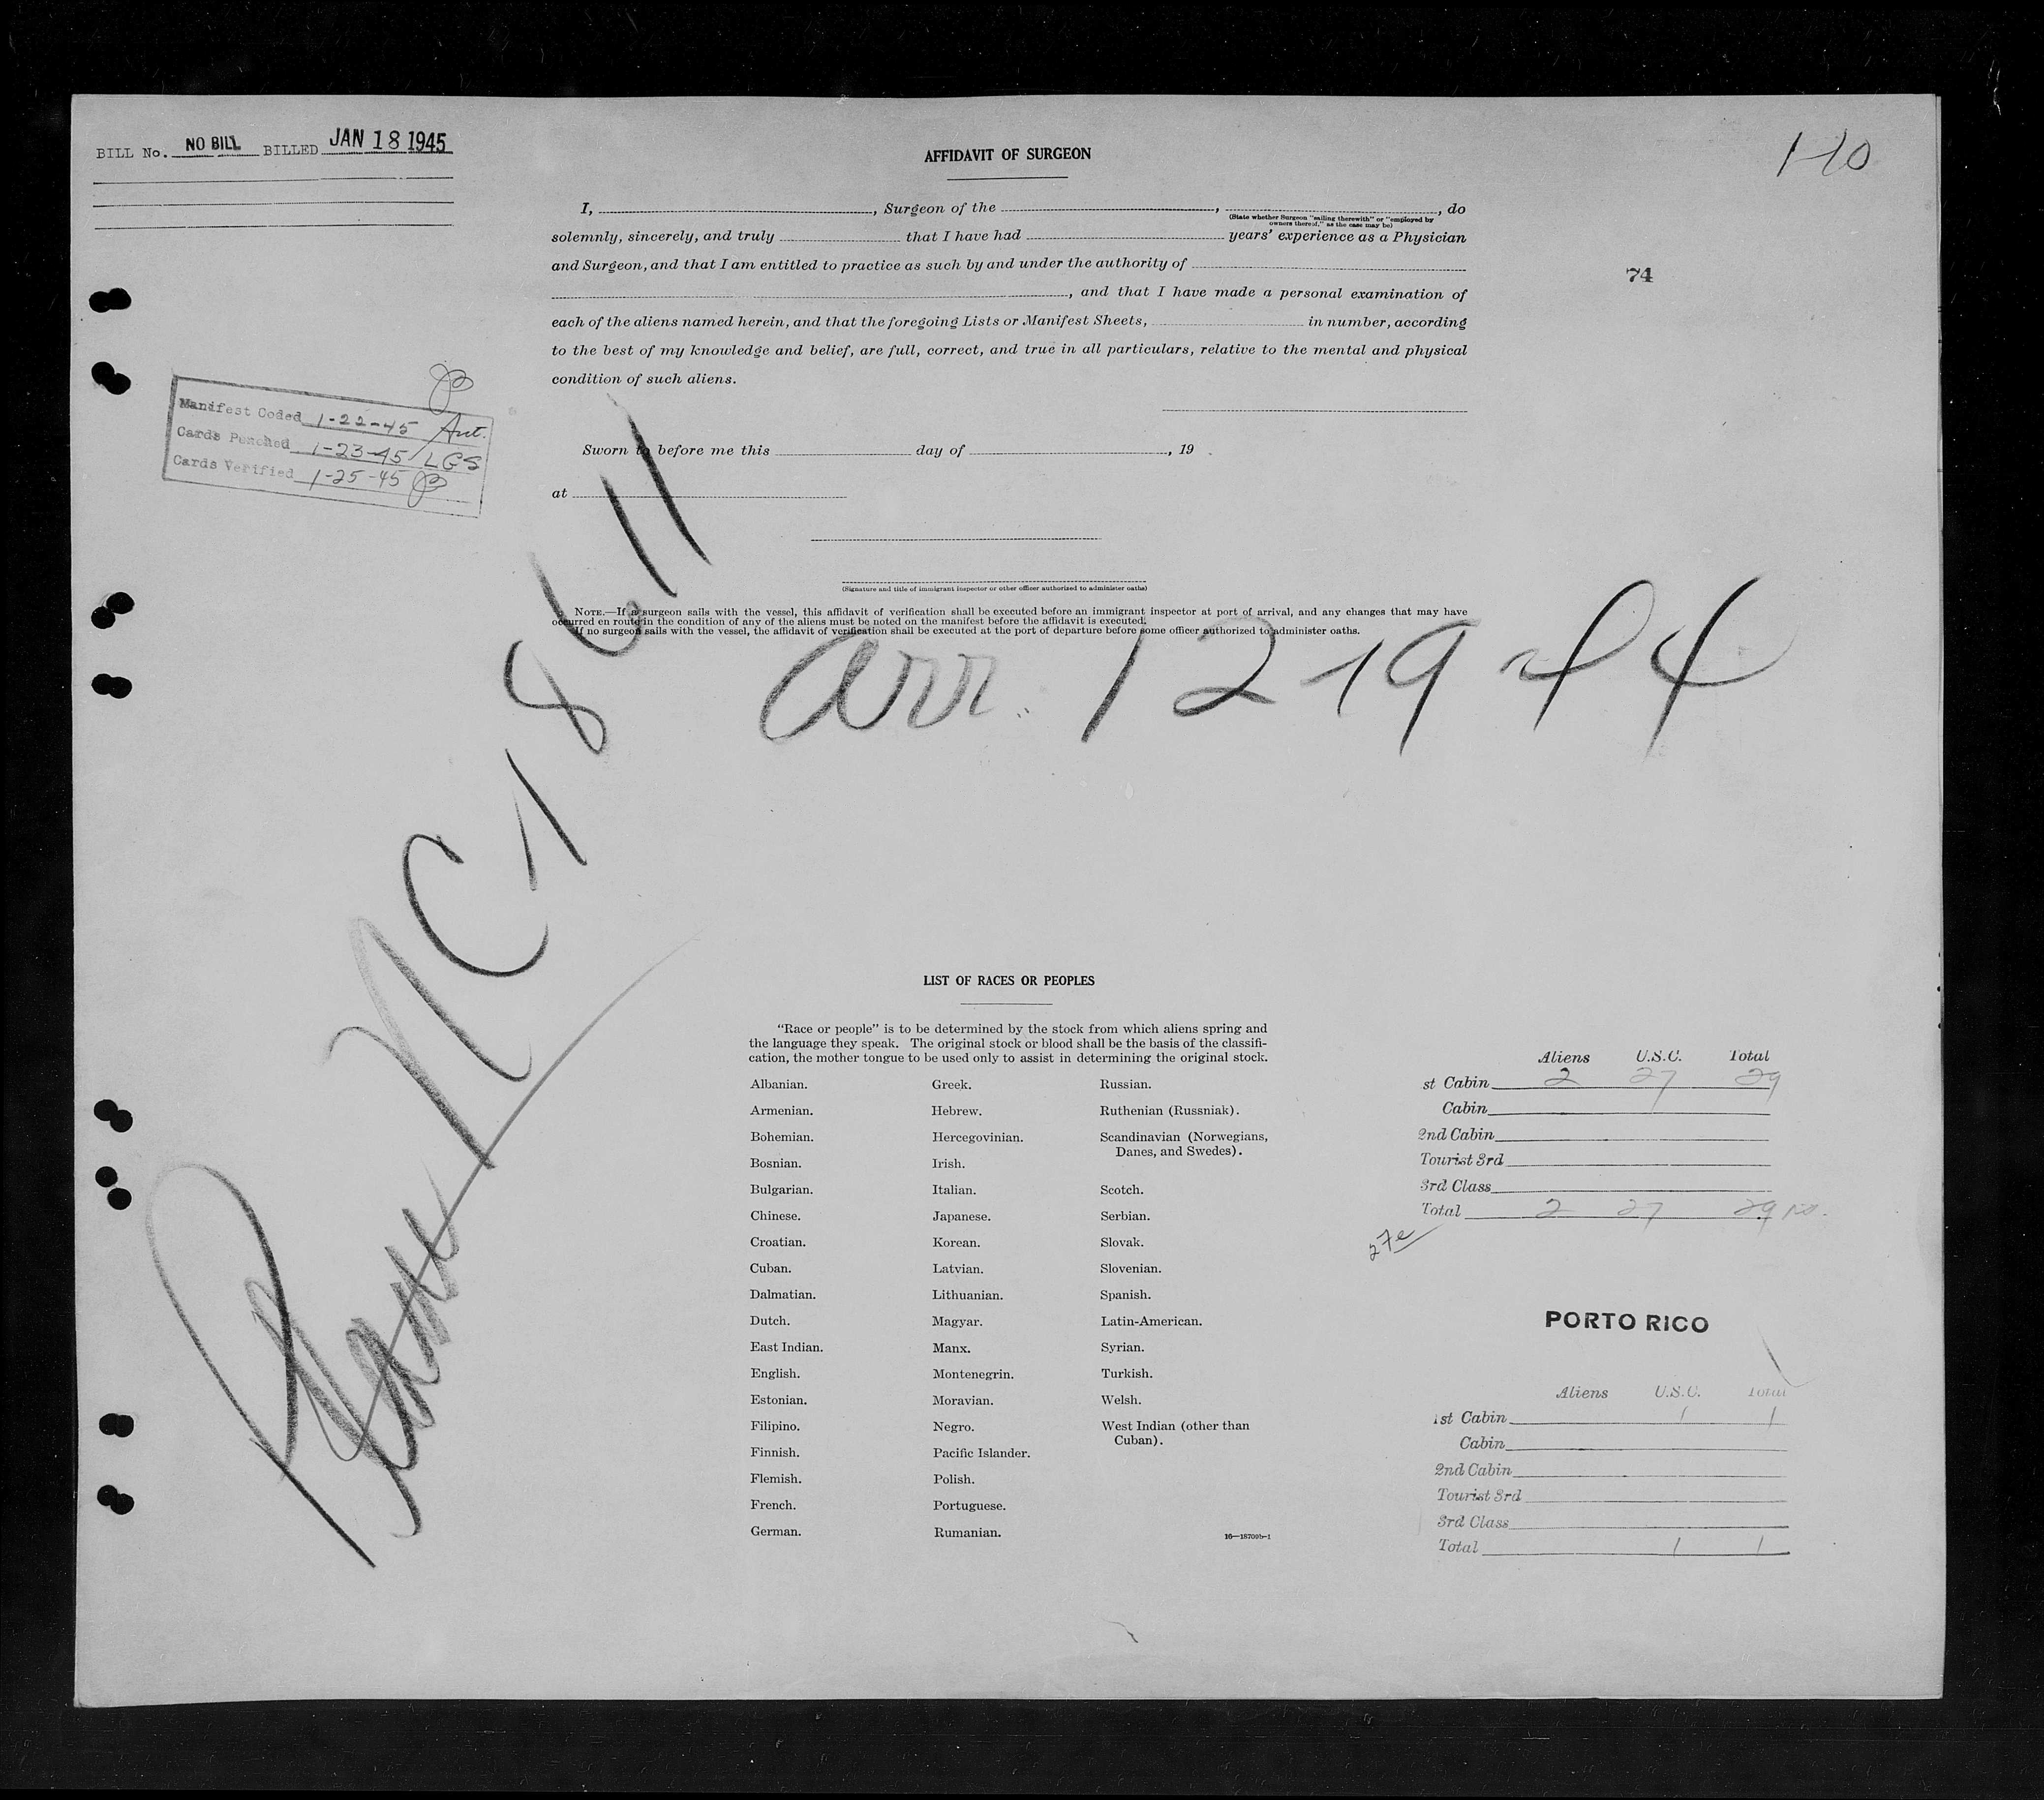 BILL No. NO BILL BILLED JAN 18 1945
1-10
AFFIDAVIT OF SURGEON
I, , Surgeon of the , , do
(State whether Surgeon "sailing therewith" or "employed by
owners thereof," as the case may be)
solemnly, sincerely, and truly that I have had years' experience as a Physician
and Surgeon, and that I am entitled to practice as such by and under the authority of
74
, and that I have made a personal examination of
each of the aliens named herein, and that the foregoing Lists or Manifest Sheets, in number, according
to the best of my knowledge and belief, are full, correct, and true in all particulars, relative to the mental and physical
condition of such aliens.
Manifest Coded 1-22-45 Ant.
Cards Punched 1-23-45 LGS
Cards Verified 1-25-45
Sworn to before me this day of , 19
at
(Signature and title of immigrant inspector or other officer authorized to administer oaths)
NOTE.—If a surgeon sails with the vessel, this affidavit of verification shall be executed before an immigrant inspector at port of arrival, and any changes that may have
occurred en route in the condition of any of the aliens must be noted on the manifest before the affidavit is executed.
If no surgeon sails with the vessel, the affidavit of verification shall be executed at the port of departure before some officer authorized to administer oaths.
arr. 12-19-44
Plane NC 18611
LIST OF RACES OR PEOPLES
"Race or people" is to be determined by the stock from which aliens spring and
the language they speak. The original stock or blood shall be the basis of the classifi-
cation, the mother tongue to be used only to assist in determining the original stock.
Albanian.
Armenian.
Bohemian.
Bosnian.
Bulgarian.
Chinese.
Croatian.
Cuban.
Dalmatian.
Dutch.
East Indian.
English.
Estonian.
Filipino.
Finnish.
Flemish.
French.
German.
Greek.
Hebrew.
Hercegovinian.
Irish.
Italian.
Japanese.
Korean.
Latvian.
Lithuanian.
Magyar.
Manx.
Montenegrin.
Moravian.
Negro.
Pacific Islander.
Polish.
Portuguese.
Rumanian.
Russian.
Ruthenian (Russniak).
Scandinavian (Norwegians,
Danes, and Swedes).
Scotch.
Serbian.
Slovak.
Slovenian.
Spanish.
Latin-American.
Syrian.
Turkish.
Welsh.
West Indian (other than
Cuban).
16—18709b-1
Aliens U.S.C. Total
st Cabin 2 27 29
Cabin
2nd Cabin
Tourist 3rd
3rd Class
Total 2 27 29
27e
PORTO RICO
Aliens U.S.C. Total
1st Cabin 1 1
Cabin
2nd Cabin
Tourist 3rd
3rd Class
Total 1 1